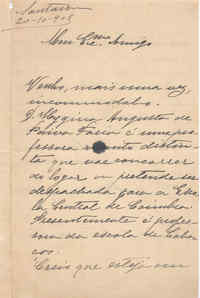 Santarem
20-10-905
Meu Ex.mo Amigo
Venho, mais uma vez,
incommodal-o.
D. Augusta de
Paiva é uma pro-
fessora muito distin-
ta que vae concorrer
ao logar ou pretende ser
despachada para a Esco-
la Central de Coimbra.
Presentemente é profes-
sora da escola de
Creio que esteja em